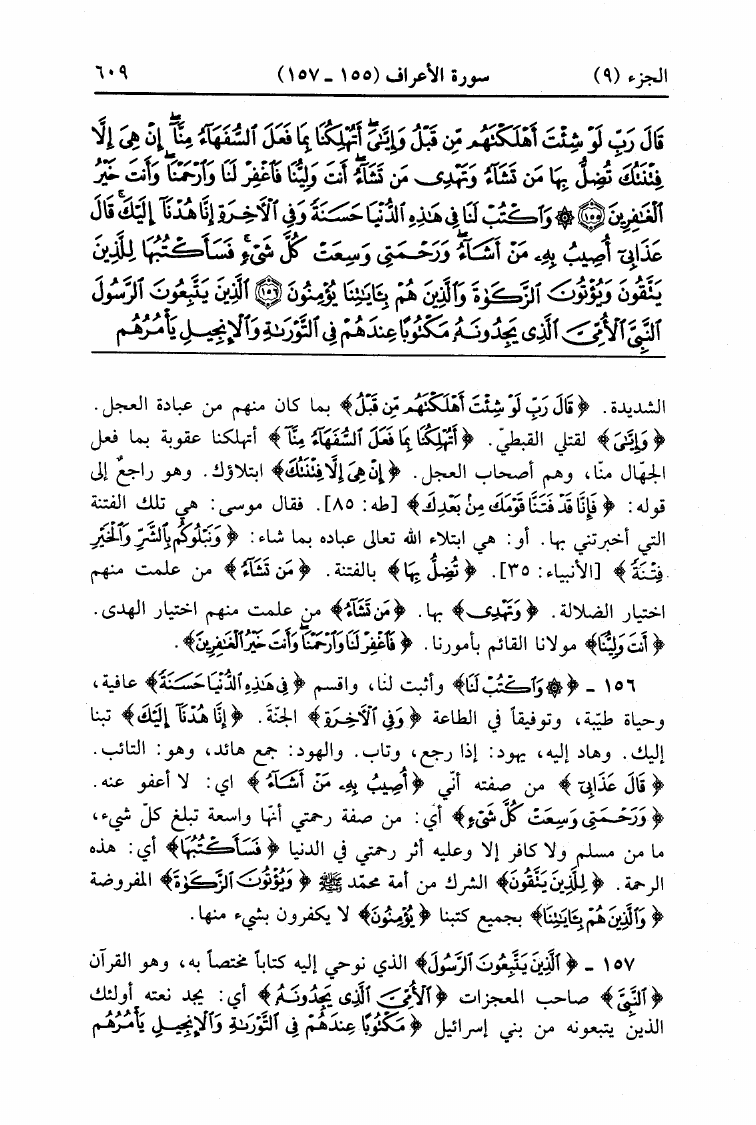 الجزء (٩) سورة الأعراف (١٥٥ ـ ١٥٧) ٦٠٩
قَالَ رَبِّ لَوْ شِئْتَ أَهْلَكْتَهُم مِّن قَبْلُ وَإِيَّٰىَ أَتُهْلِكُنَا بِمَا فَعَلَ ٱلسُّفَهَآءُ مِنَّآ إِنْ هِىَ إِلَّا
فِتْنَتُكَ تُضِلُّ بِهَا مَن تَشَآءُ وَتَهْدِى مَن تَشَآءُ أَنتَ وَلِيُّنَا فَٱغْفِرْ لَنَا وَٱرْحَمْنَا وَأَنتَ خَيْرُ
ٱلْغَٰفِرِينَ ۝١٥٥ ۞ وَٱكْتُبْ لَنَا فِى هَٰذِهِ ٱلدُّنْيَا حَسَنَةً وَفِى ٱلْأَخِرَةِ إِنَّا هُدْنَآ إِلَيْكَ قَالَ
عَذَابِىٓ أُصِيبُ بِهِۦ مَنْ أَشَآءُ وَرَحْمَتِى وَسِعَتْ كُلَّ شَىْءٍ فَسَأَكْتُبُهَا لِلَّذِينَ
يَتَّقُونَ وَيُؤْتُونَ ٱلزَّكَوٰةَ وَٱلَّذِينَ هُم بِـَٔايَٰتِنَا يُؤْمِنُونَ ۝١٥٦ ٱلَّذِينَ يَتَّبِعُونَ ٱلرَّسُولَ
ٱلنَّبِىَّ ٱلْأُمِّىَّ ٱلَّذِى يَجِدُونَهُۥ مَكْتُوبًا عِندَهُمْ فِى ٱلتَّوْرَىٰةِ وَٱلْإِنجِيلِ يَأْمُرُهُم
الشديدة. ﴿قَالَ رَبِّ لَوْ شِئْتَ أَهْلَكْتَهُم مِّن قَبْلُ﴾ بما كان منهم من عبادة العجل.
﴿وَإِيَّٰىَ﴾ لقتلي القبطيّ. ﴿أَتُهْلِكُنَا بِمَا فَعَلَ ٱلسُّفَهَآءُ مِنَّآ﴾ أتهلكنا عقوبة بما فعل
الجهّال منّا، وهم أصحاب العجل. ﴿إِنْ هِىَ إِلَّا فِتْنَتُكَ﴾ ابتلاؤك. وهو راجعٌ إلى
قوله: ﴿فَإِنَّا قَدْ فَتَنَّا قَوْمَكَ مِنۢ بَعْدِكَ﴾ [طه: ٨٥]. فقال موسى: هي تلك الفتنة
التي أخبرتني بها. أو: هي ابتلاء الله تعالى عباده بما شاء: ﴿وَنَبْلُوكُم بِٱلشَّرِّ وَٱلْخَيْرِ
فِتْنَةً﴾ [الأنبياء: ٣٥]. ﴿تُضِلُّ بِهَا﴾ بالفتنة. ﴿مَن تَشَآءُ﴾ من علمت منهم
اختيار الضلالة. ﴿وَتَهْدِى﴾ بها. ﴿مَن تَشَآءُ﴾ من علمت منهم اختيار الهدى.
﴿أَنتَ وَلِيُّنَا﴾ مولانا القائم بأمورنا. ﴿فَٱغْفِرْ لَنَا وَٱرْحَمْنَا وَأَنتَ خَيْرُ ٱلْغَٰفِرِينَ﴾.
١٥٦ ـ ﴿۞ وَٱكْتُبْ لَنَا﴾ وأثبت لنا، واقسم ﴿فِى هَٰذِهِ ٱلدُّنْيَا حَسَنَةً﴾ عافية،
وحياة طيّبة، وتوفيقاً في الطاعة ﴿وَفِى ٱلْأَخِرَةِ﴾ الجنّة. ﴿إِنَّا هُدْنَآ إِلَيْكَ﴾ تبنا
إليك. وهاد إليه، يهود: إذا رجع، وتاب. والهود: جمع هائد، وهو: التائب.
﴿قَالَ عَذَابِىٓ﴾ من صفته أنّي ﴿أُصِيبُ بِهِۦ مَنْ أَشَآءُ﴾ اي: لا أعفو عنه.
﴿وَرَحْمَتِى وَسِعَتْ كُلَّ شَىْءٍ﴾ أي: من صفة رحمتي أنّها واسعة تبلغ كلّ شيء،
ما من مسلم ولا كافر إلا وعليه أثر رحمتي في الدنيا ﴿فَسَأَكْتُبُهَا﴾ أي: هذه
الرحمة. ﴿لِلَّذِينَ يَتَّقُونَ﴾ الشرك من أمة محمّد ﷺ ﴿وَيُؤْتُونَ ٱلزَّكَوٰةَ﴾ المفروضة
﴿وَٱلَّذِينَ هُم بِـَٔايَٰتِنَا﴾ بجميع كتبنا ﴿يُؤْمِنُونَ﴾ لا يكفرون بشيء منها.
١٥٧ ـ ﴿ٱلَّذِينَ يَتَّبِعُونَ ٱلرَّسُولَ﴾ الذي نوحي إليه كتاباً مختصاً به، وهو القرآن
﴿ٱلنَّبِىَّ﴾ صاحب المعجزات ﴿ٱلْأُمِّىَّ ٱلَّذِى يَجِدُونَهُۥ﴾ أي: يجد نعته أولئك
الذين يتبعونه من بني إسرائيل ﴿مَكْتُوبًا عِندَهُمْ فِى ٱلتَّوْرَىٰةِ وَٱلْإِنجِيلِ يَأْمُرُهُم